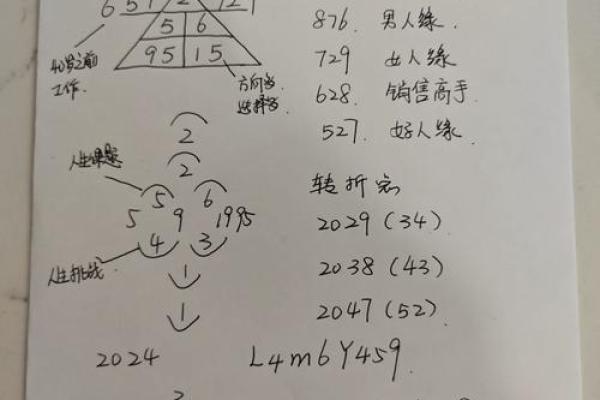 6 5 1 2
5 6
95 15
40岁之前
工作.
方向字.
选择字
876. 男人缘
729 女人缘
628. 销售高手.
527. 好人缘.
2
2
人生课题
5 6
5 9 1995
4 3
人生挑战.
1
1
转折点
2029 (34)
2038 (43)
2047 (52)
2024 L4m6Y459.